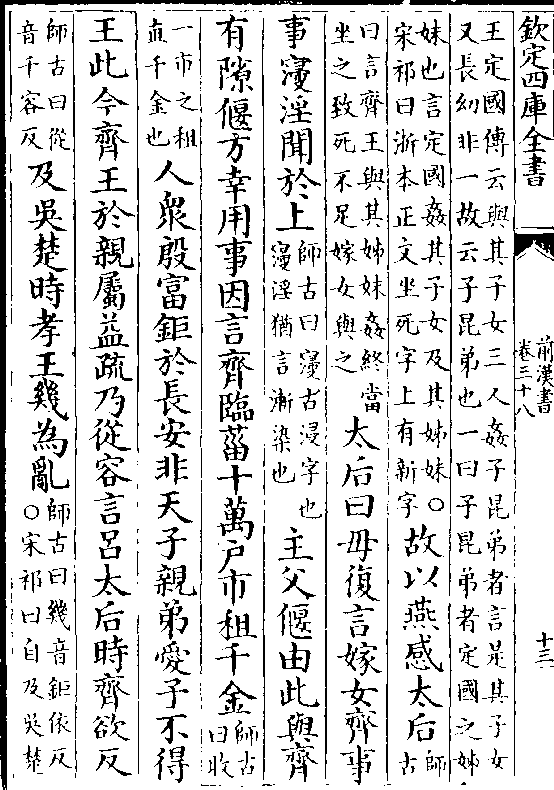 欽定四庫全書
前漢書
卷三十八
十三
王定國傳云與其子女三人姦子昆弟者言是其子女
又長幼非一故云子昆弟也一曰子昆弟者定國之姊
妹也言定國姦其子女及其姊妹○
宋祁曰浙本正文坐死字上有新字
故以燕感太后
師古
曰言齊王與其姊妹姦終當
坐之致死不足嫁女與之
太后曰毋復言嫁女齊事
事寖淫聞於上
師古曰寖古浸字也
寖淫猶言漸染也
主父偃由此與齊
有隙偃方幸用事因言齊臨菑十萬户市租千金
師古
曰收
一市之租
直千金也
人衆殷富鉅於長安非天子親弟愛子不得
王此今齊王於親屬益疏乃從容言呂太后時齊欲反
師古曰從
音千容反
及吳楚時孝王幾為亂
師古曰幾音鉅依反
○宋祁曰自及吳楚